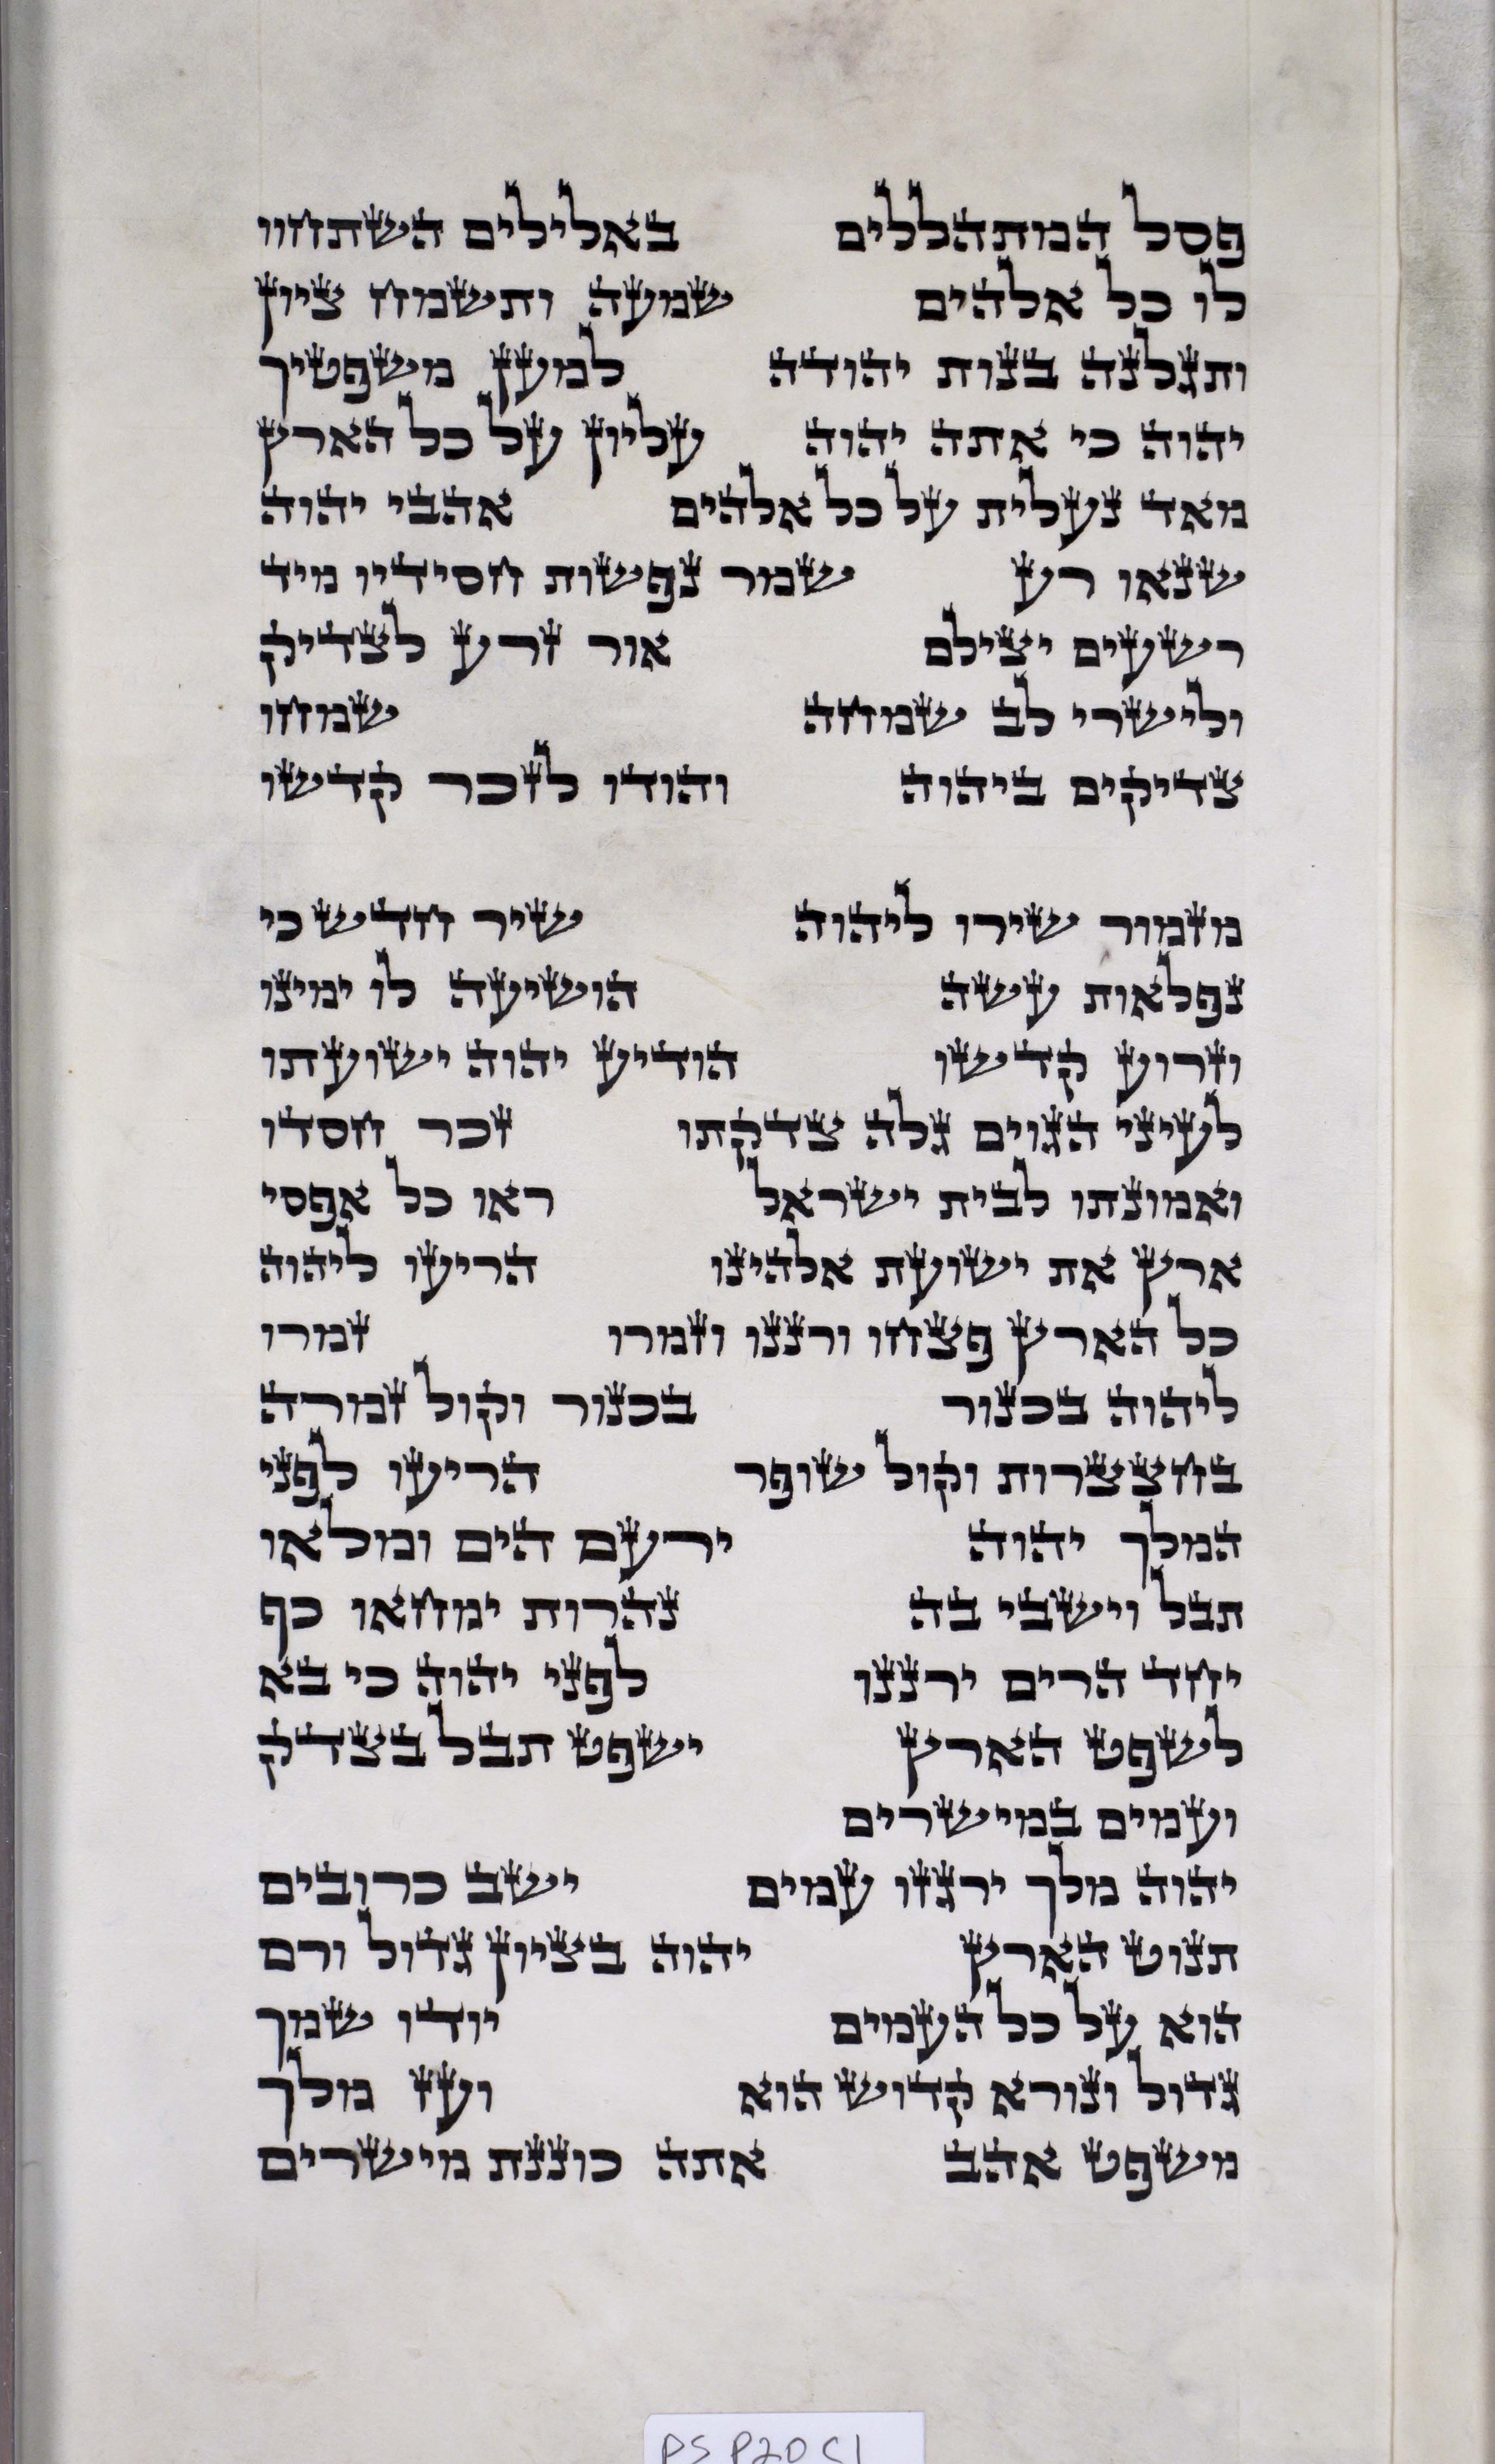 פסל המתהללים באלילים השתחוו
לו כל אלהים שמעה ותשמח ציון
ותגלנה בנות יהודה למען משפטיך
יהוה כי אתה יהוה עליון על כל הארץ
מאד נעלית על כל אלהים אהבי יהוה
שנאו רע שמר נפשות חסידיו מיד
רשעים יצילם אור זרע לצדיק
ולישרי לב שמחה שמחו
צדיקים ביהוה והודו לזכר קדשו
מזמור שירו ליהוה שיר חדש כי
נפלאות עשה הושיעה לו ימינו
וזרוע קדשו הודיע יהוה ישועתו
לעיני הגוים גלה צדקתו זכר חסדו
ואמונתו לבית ישראל ראו כל אפסי
ארץ את ישועת אלהינו הריעו ליהוה
כל הארץ פצחו ורננו וזמרו זמרו
ליהוה בכנור בכנור וקול זמרה
בחצצרות וקול שופר הריעו לפני
המלך יהוה ירעם הים ומלאו
תבל וישבי בה נהרות ימחאו כף
יחד הרים ירננו לפני יהוה כי בא
לשפט הארץ ישפט תבל בצדק
ועמים במישרים
יהוה מלך ירגזו עמים ישב כרובים
תנוט הארץ יהוה בציון גדול ורם
הוא על כל העמים יודו שמך
גדול ונורא קדוש הוא ועז מלך
משפט אהב אתה כוננת מישרים
PS P20 C1